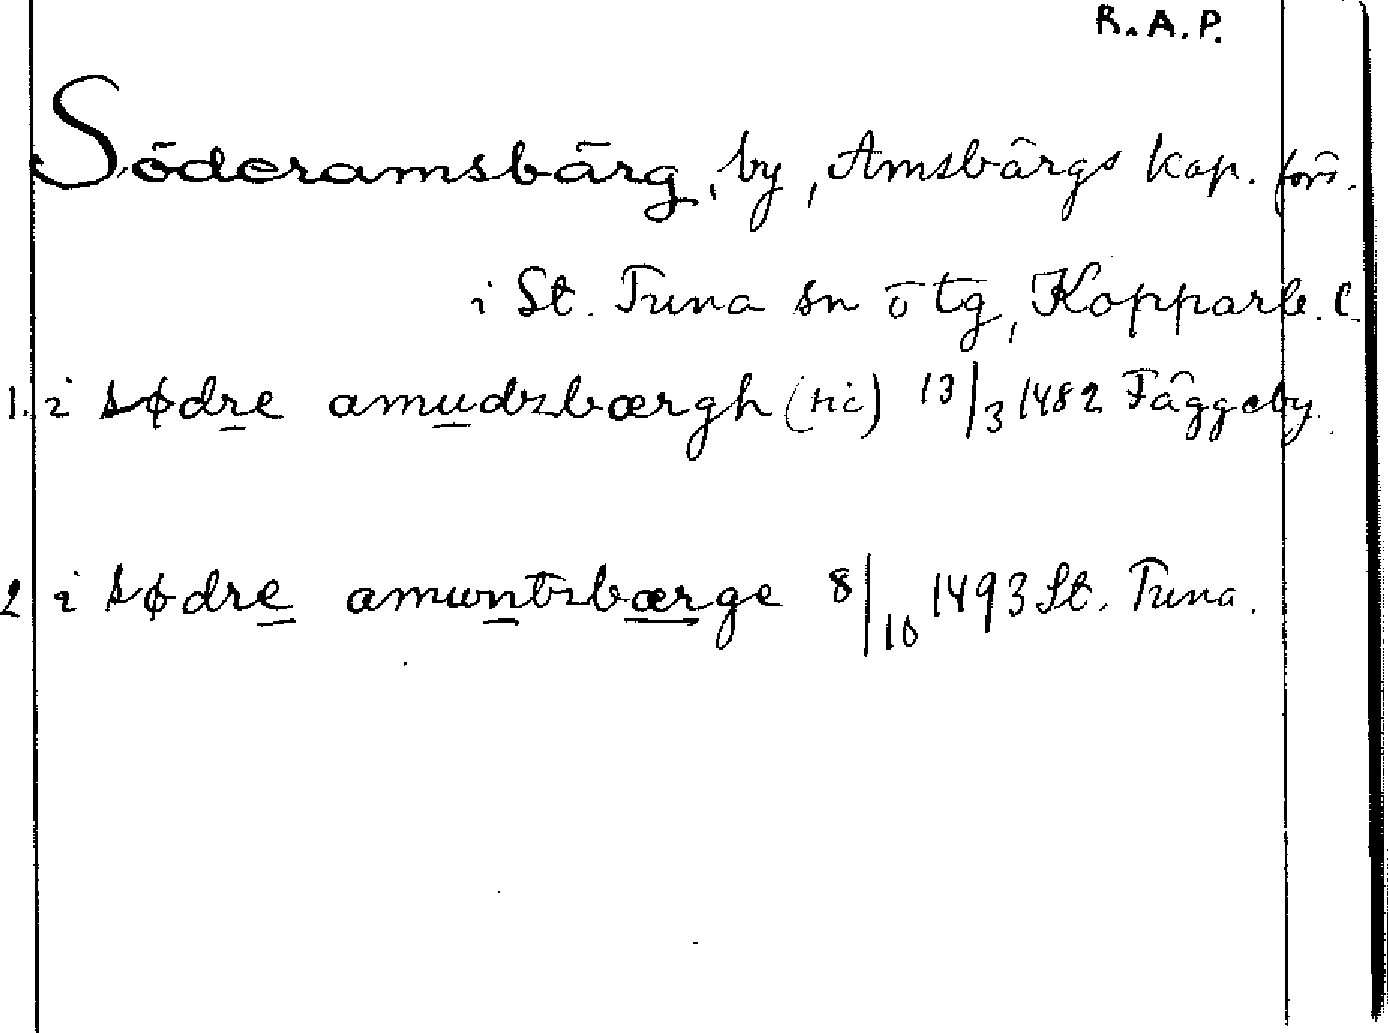 R.A.P.
Söderamsbärg, by, Amsbärgs kap. förs.
i St. Tuna sn o tg, Kopparb. l.
1. i sødre amudzbærgh (sic) 13/3 1482 Fäggeby.
2 i sødre amuntzbærge 8/10 1493 St. Tuna.